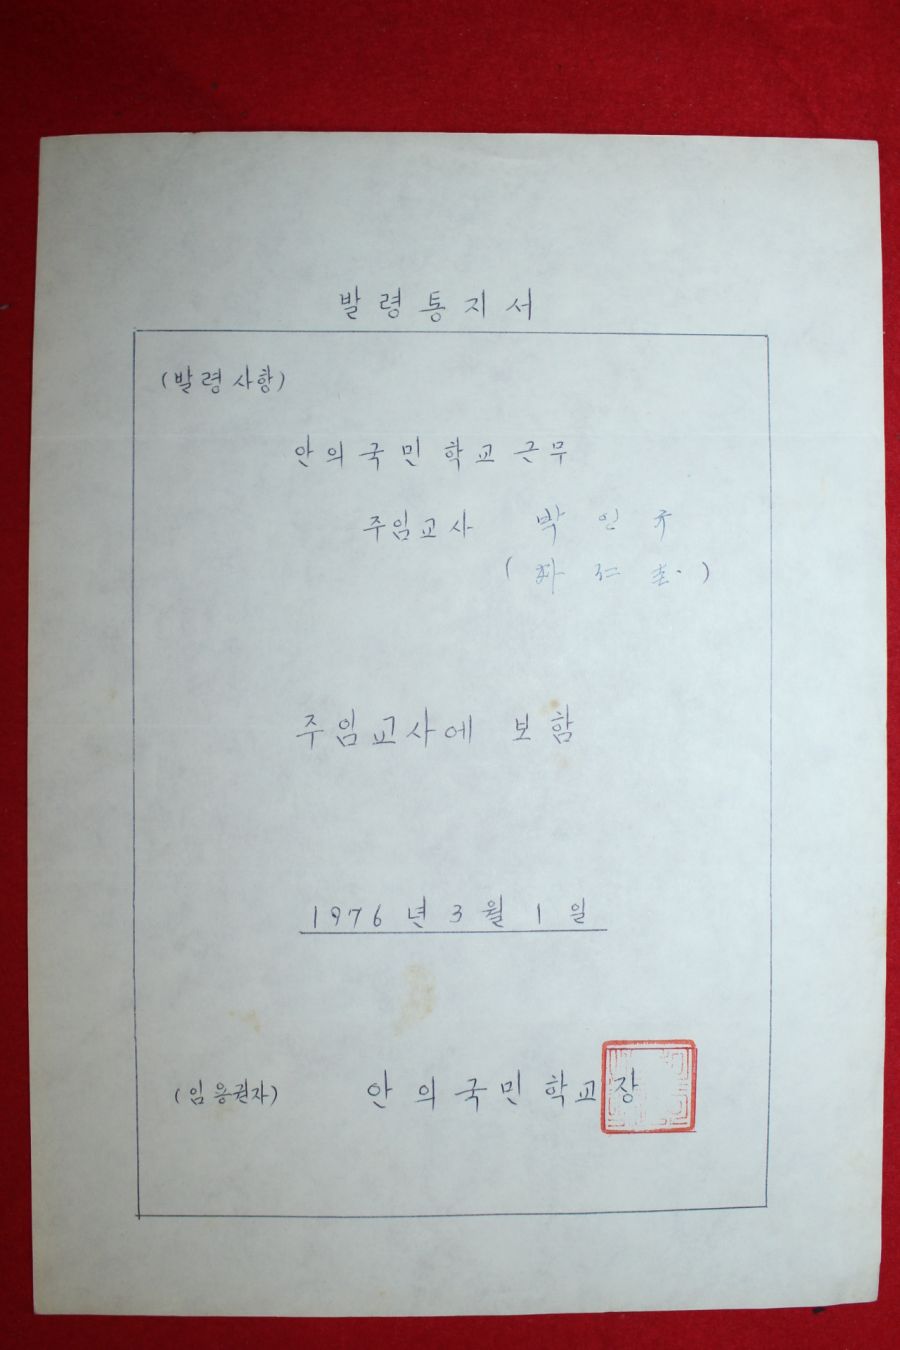 발령통지서
(발령사항)
안의국민학교근무
주임교사 박인규
주임교사에 보함
1976년 3월 1일
(임용권자) 안의국민학교장